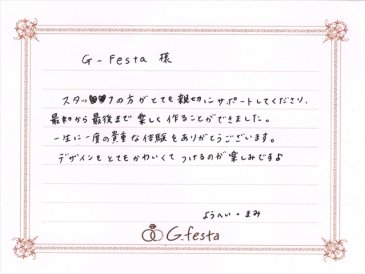 G-Festa 様
スタッフの方がとても親切にサポートしてくださり、
最初から最後まで楽しく作ることができました。
一生に一度の貴重な体験をありがとうございます。
デザインもとてもかわいくてつけるのが楽しみですよ
ようへい・まみ
G.festa